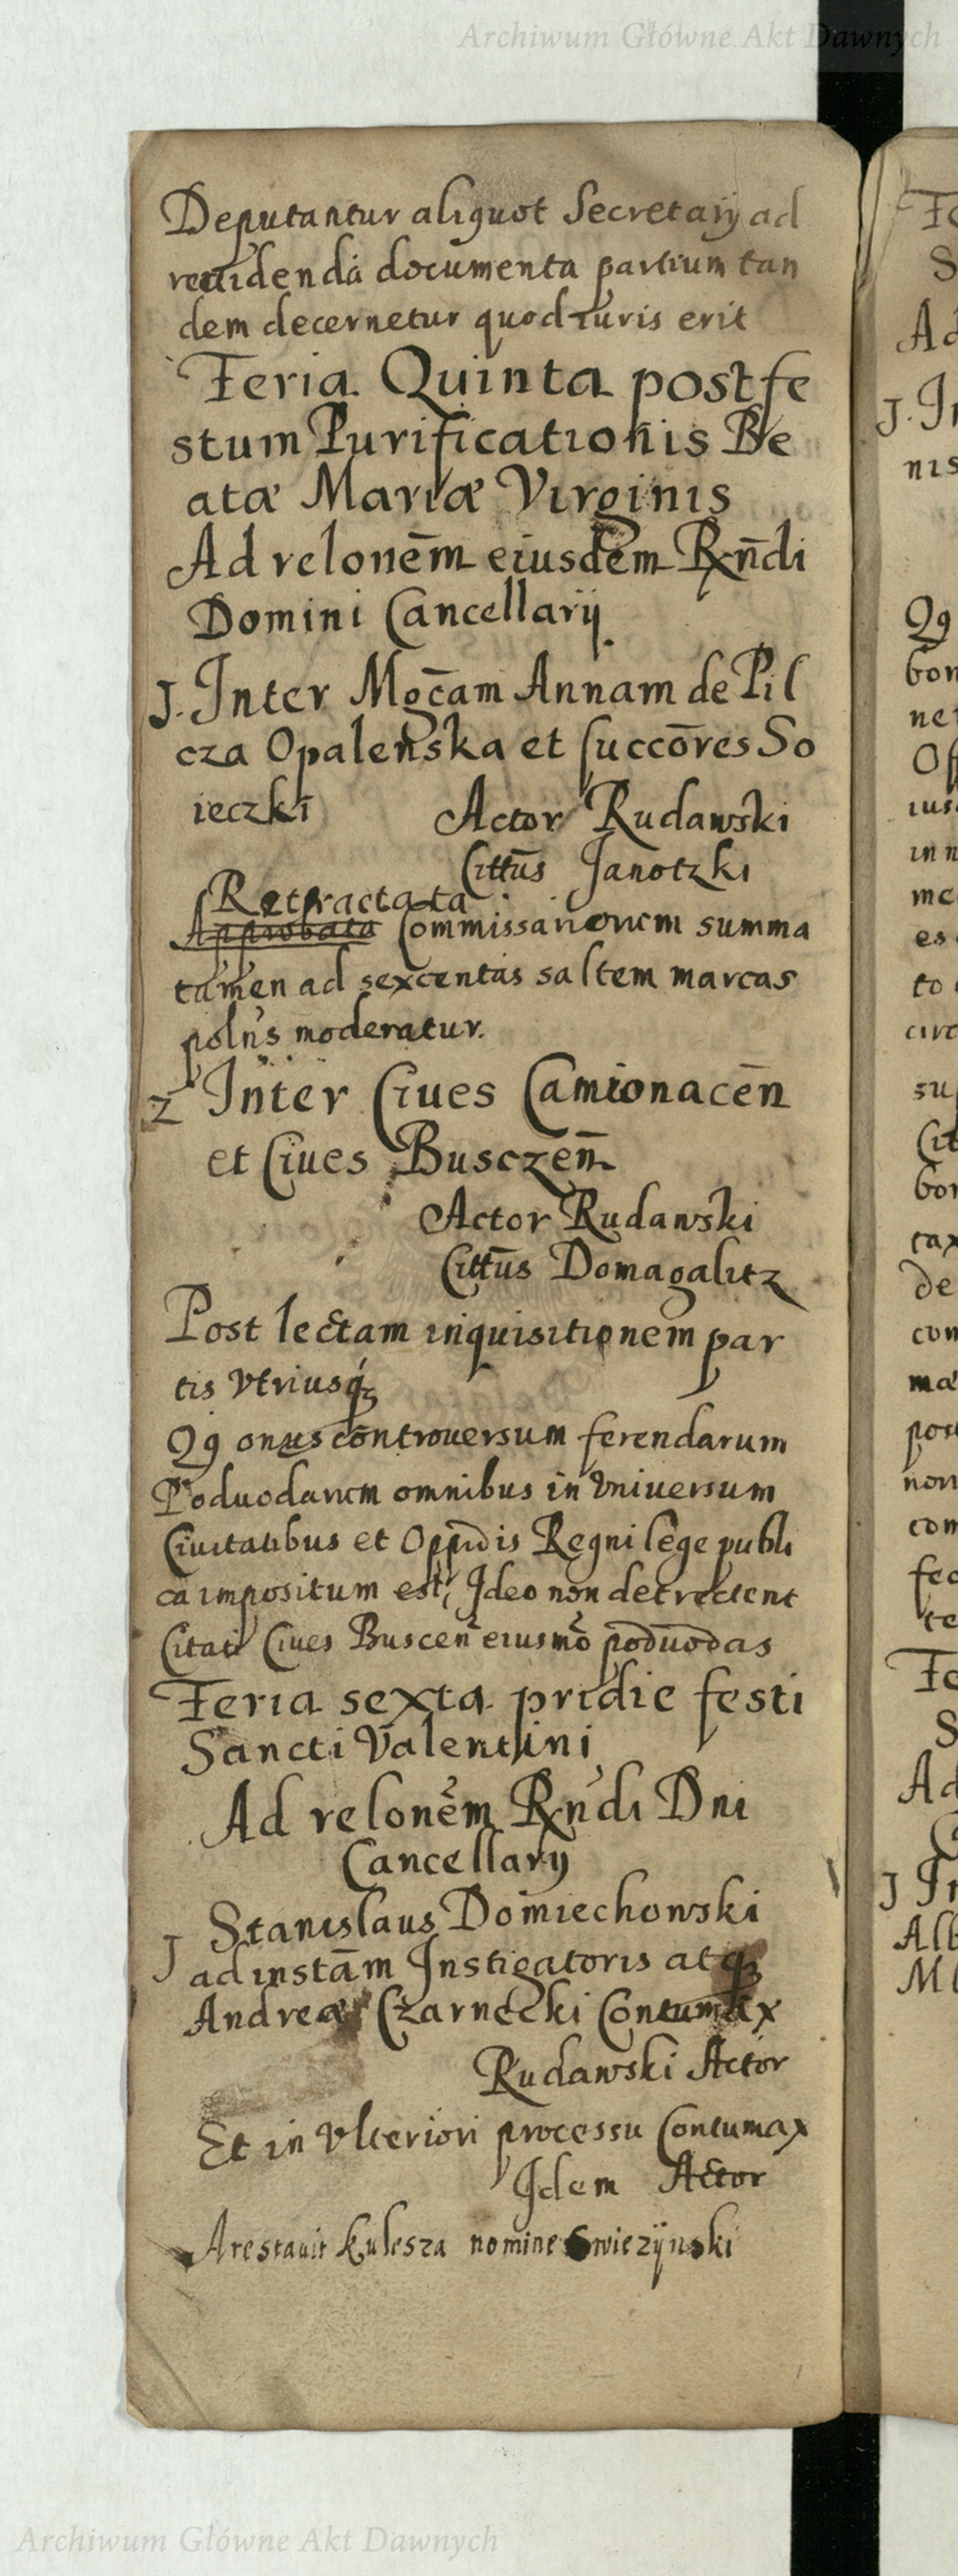 Archiwum Główne Akt Dawnych
Deputantur aliquot Secretarÿ ad
reuidenda documenta partium tan
dem decernetur quod iuris erit
Feria Quinta post fe
stum Purificationis Be
atæ Mariæ Virginis
Ad relonēm eiusdem Rn̄di
Domini Cancellarÿ
J. Inter Mgc̄am Annam de Pil
cza Opalenska et succōres So
ieczki Actor Rudawski
Citt̄us Janotzki
Retractata
Approbata Commissariorum summa
tamen ad sexcentas saltem marcas
poln̄s moderatur.
2 Inter Ciues Camionacēn
et Ciues Busczen̄
Actor Rudawski
Citt̄us Domagalicz
Post lectam inquisitionem par
tis vtriusq́ꝫ
Qꝯ onus controuersum ferendarum
Poduodarum omnibus in vniuersum
Ciuitatibus et Oppidis Regni lege publi
ca impositum est, Ideo non detrectent
Citati Ciues Buscen̄ eiusmō poduodas
Feria sexta pridie festi
Sancti Valentini
Ad relonēm Rn̄di Dni
Cancellarÿ
J Stanislaus Domiechowski
ad instām Instigatoris atqꝫ
Andreæ Czarnecki Contumax
Rudawski Actor
Et in vlteriori processu Contumax
Idem Actor
Arestauit Kulesza nomine Swiezÿnski
Archiwum Główne Akt Dawnych